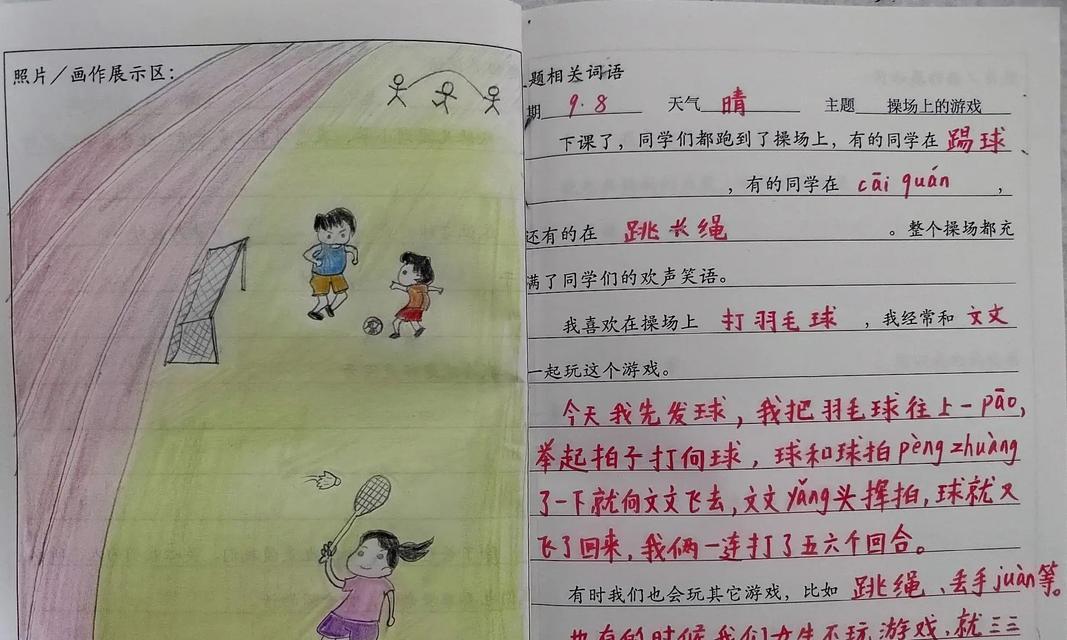 照片/画作展示区：
题相关词语
期 9.8 天气 晴 主题 操场上的游戏
下课了，同学们都跑到了操场上，有的同学在 踢球
，有的同学在 cāi quán ，
还有的在 跳长绳 。整个操场都充
满了同学们的欢声笑语。
我喜欢在操场上 打羽毛球 ，我经常和 文文
一起玩这个游戏。
今天我先发球，我把羽毛球往上一pāo，
举起拍子打向球，球和球拍pèng zhuàng
了一下就向文文飞去，文文yǎng头挥拍，球就又
飞了回来，我俩一连打了五六个回合。
有时我们也会玩其它游戏，比如 跳绳、丢手juàn等。
也有的时候我们女生不玩游戏，就三三